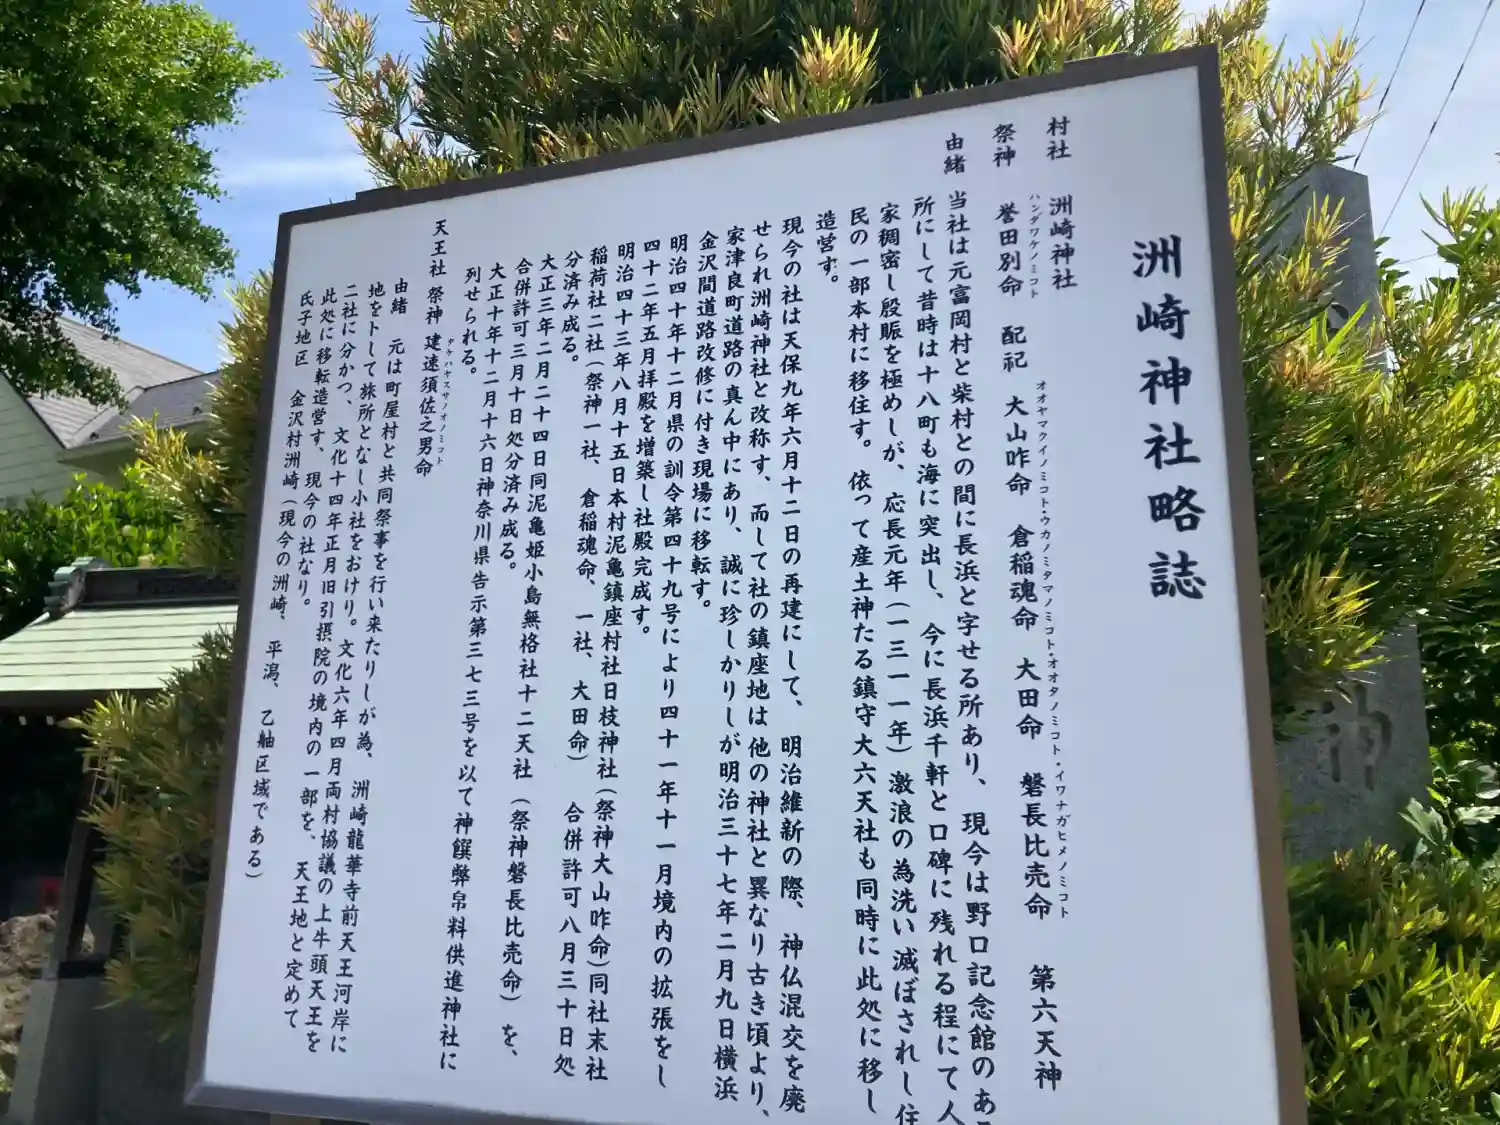 洲崎神社略誌
村社 洲崎神社
祭神 誉田別命 配祀 大山咋命 倉稲魂命 大田命 磐長比売命 第六天神
ハンダワケノミコト オオヤマクイノミコト・ウカノミタマノミコト・オオタノミコト・イワナガヒメノミコト
由緒 当社は元富岡村と柴村との間に長浜と字せる所あり、現今は野口記念館のあ
所にして昔時は十八町も海に突出し、今に長浜千軒と口碑に残れる程にて人
家稠密し殷賑を極めしが、応長元年(一三一一年)激浪の為洗い滅ぼされし住
民の一部本村に移住す。依って産土神たる鎮守大六天社も同時に此処に移し
造営す。
現今の社は天保九年六月十二日の再建にして、明治維新の際、神仏混交を廃
せられ洲崎神社と改称す、而して社の鎮座地は他の神社と異なり古き頃より、
家津良町道路の真ん中にあり、誠に珍しかりしが明治三十七年二月九日横浜
金沢間道路改修に付き現場に移転す。
明治四十年十二月県の訓令第四十九号により四十一年十一月境内の拡張をし
四十二年五月拝殿を増築し社殿完成す。
明治四十三年八月十五日本村泥亀鎮座村社日枝神社(祭神大山咋命)同社末社
稲荷社二社(祭神一社、倉稲魂命、一社、大田命) 合併許可八月三十日処
分済み成る。
大正三年二月二十四日同泥亀姫小島無格社十二天社(祭神磐長比売命)を、
合併許可三月十日処分済み成る。
大正十年十二月十六日神奈川県告示第三七三号を以て神饌弊帛料供進神社に
列せられる。
天王社 祭神 建速須佐之男命
タケハヤスサノオノミコト
由緒 元は町屋村と共同祭事を行い来たりしが為、洲崎龍華寺前天王河岸に
地を卜して旅所となし小社をおけり。文化六年四月両村協議の上牛頭天王を
二社に分かつ、文化十四年正月旧引摂院の境内の一部を、天王地と定めて
此処に移転造営す、現今の社なり。
氏子地区 金沢村洲崎(現今の洲崎、平潟、乙舳区域である)
神